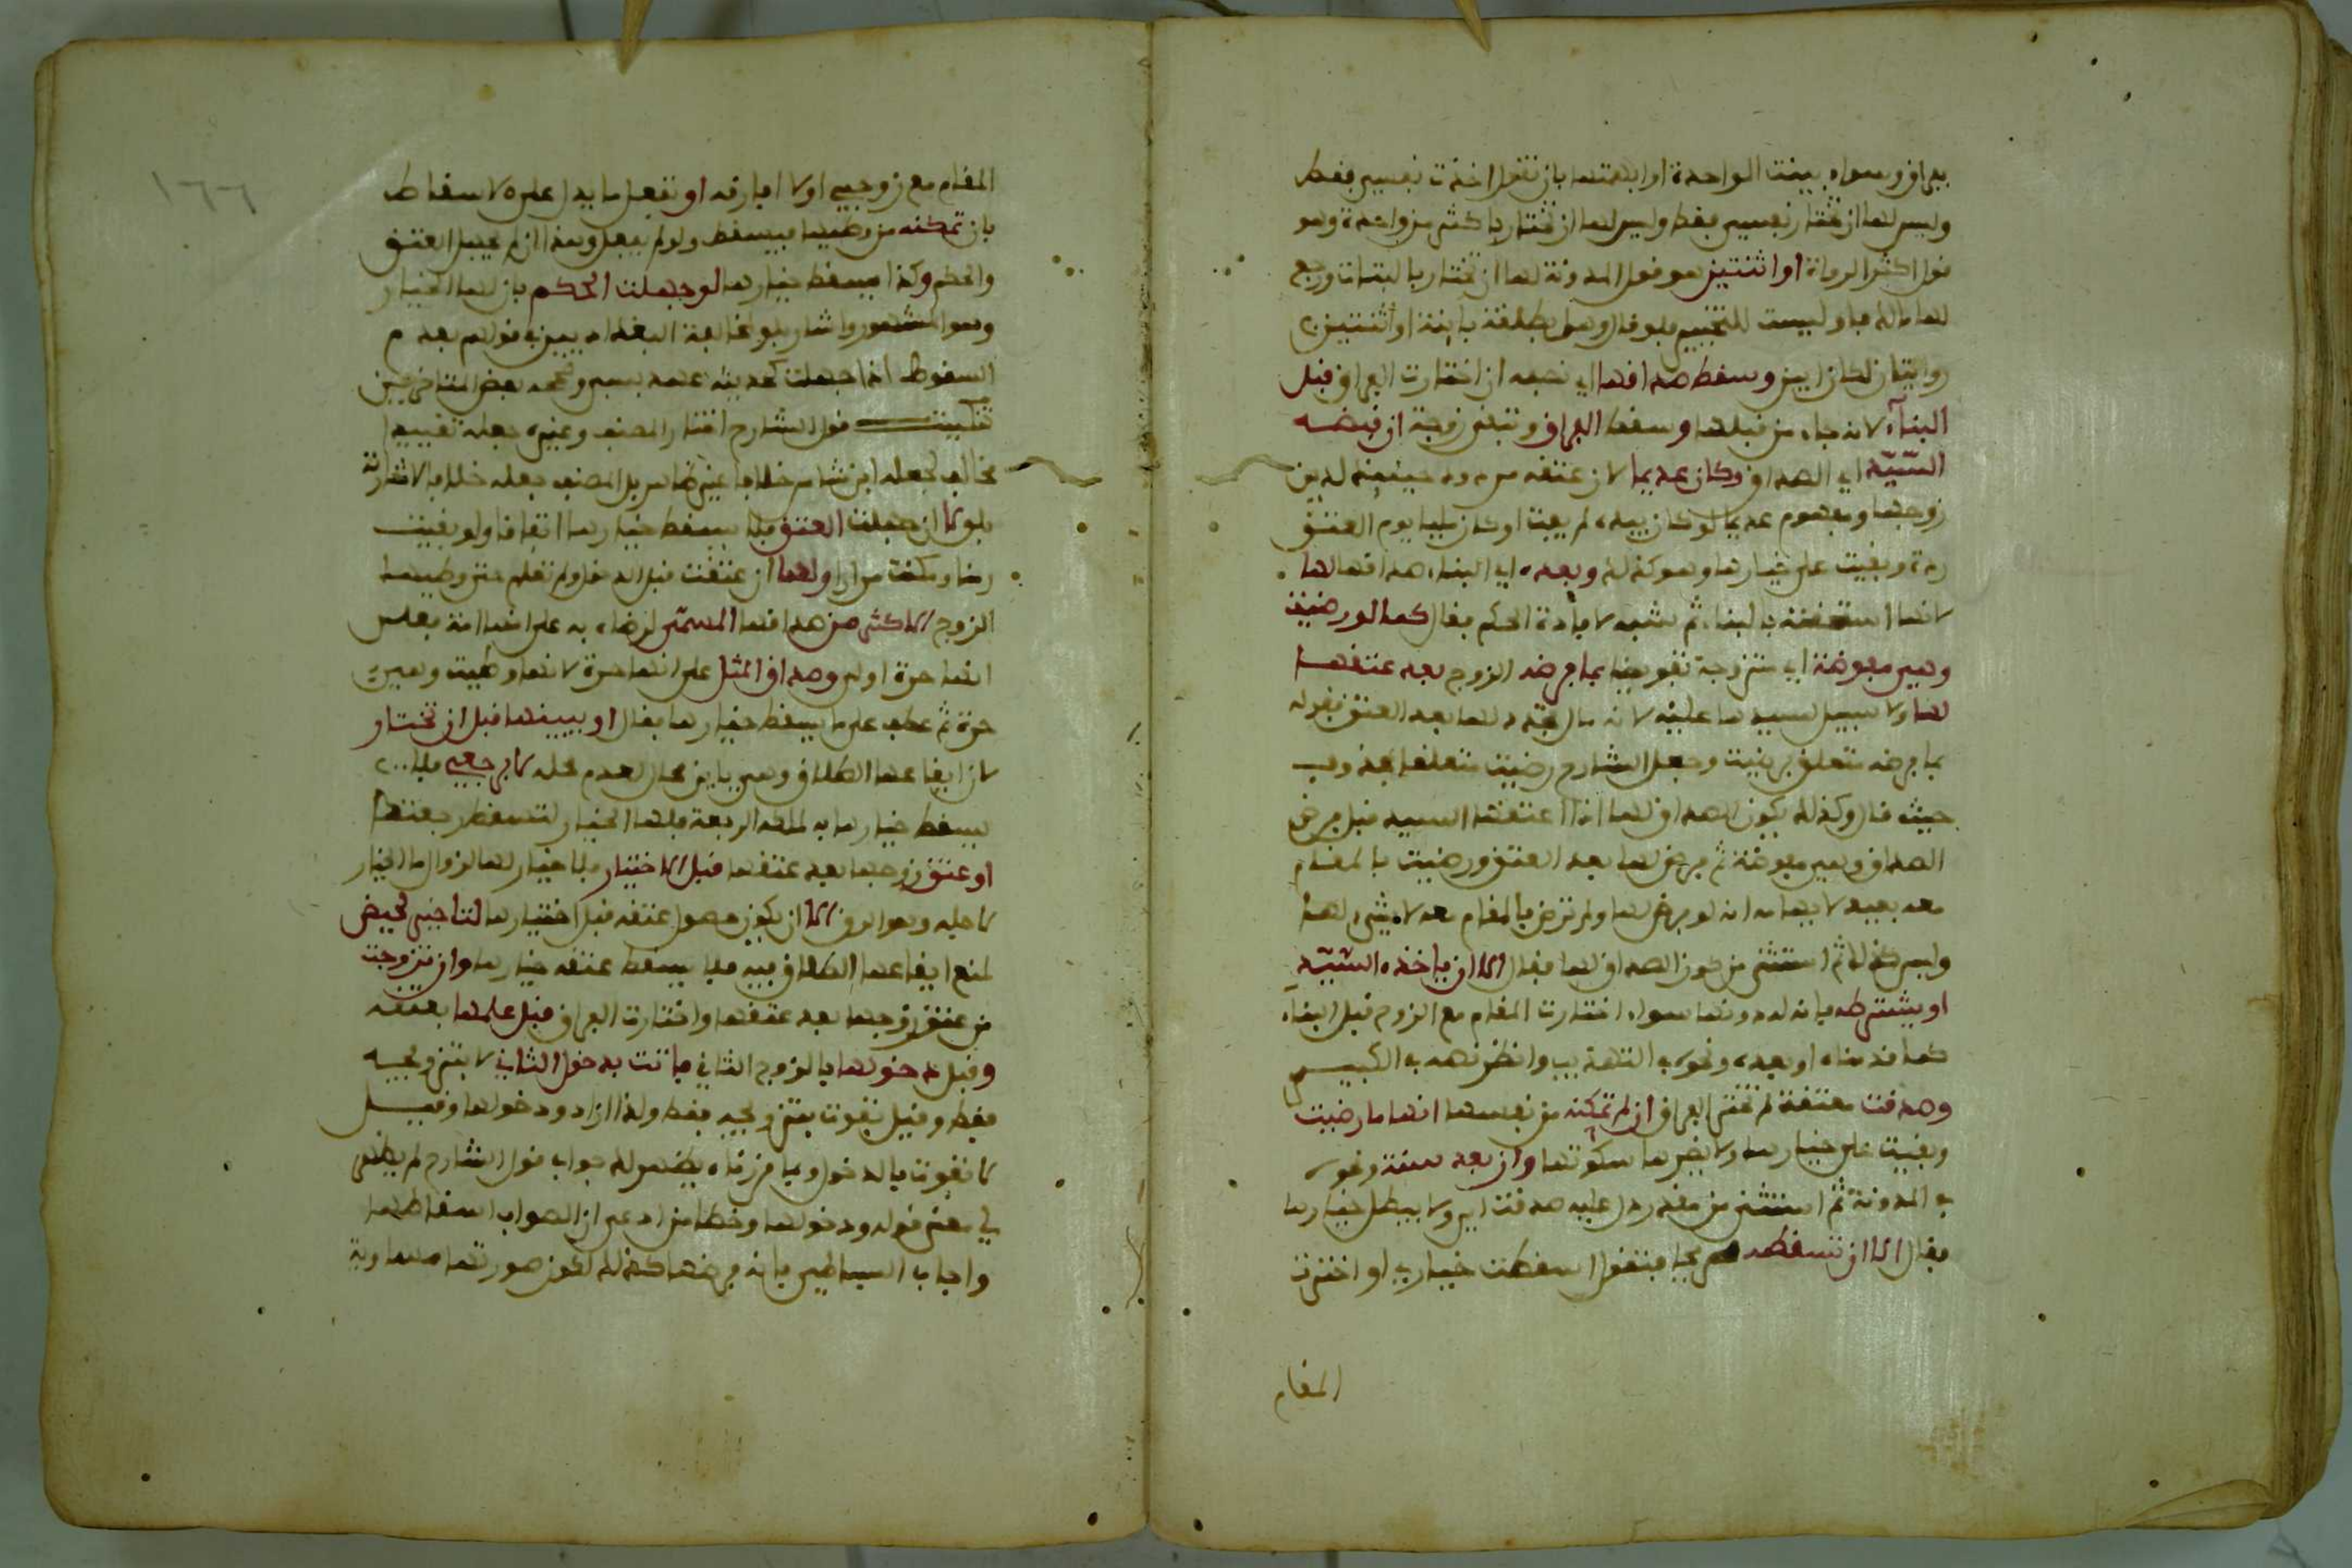 بفراق وسواء بينت الواحدة او ابهمتها بان تقول اخترت نفسي فقط
وليس لها ان تختار نفسي فقط وليس لها ان تختار باكثر من واحدة وهو
قول اكثر الرواة او اثنتين هو قول المدونة لها ان تختار بالبتات ورجع
لها مالك فاوليست للتخيير فلو قال وهل بطلقة باينة او اثنتين
روايتان لكان ابين وسقط صداقها اي نصفه ان اختارت الفراق قبل
البناء لانه جاء من قبلها وسقط الفراق وتبقى زوجة ان قبضه
السيد اي الصداق وكان عديما لان عتقه صدر حينئذ لدين
زوجها ومفهوم عديما لو كان بيده لم يفت او كان مليا يوم العتق
ردة وبقيت على خيارها وهو كذلك وبعده اي البناء صداقها لها
لانها استحقته بالبناء ثم شبه لافادة الحكم فقال كما لو رضيت
وهي مفوضة اي متزوجة تفويضا بما فرضه الزوج بعد عتقها
لها ولا سبيل لسيدها عليه لانه مال تجدد لها بعد العتق فقوله
بما فرضه متعلق برضيت وجعل الشارح رضيت متعلقا
حيث قال وكذلك يكون الصداق لها اذا اعتقها السيد قبل فرض
الصداق وهي مفوضة ثم فرض لها بعد العتق ورضيت بالمقام
معه بعيد لايهامه انه لو فرض لها ولم ترض بالمقام معه لا شيء لها
وليس كذلك ثم استثنى من كون الصداق لها فقال الا ان ياخذه السيد
او يشترطه فانه له دونها سواء اختارت المقام مع الزوج قبل البناء
كما قدمناه او بعده ونحوه في التهذيب وانظر نصه في الكبير
وصدقت معتقة لم تختر الفراق ان لم تمكنه من نفسها انها ما رضيت
وبقيت على خيارها ولا يضرها سكوتها وان بعد سنة ونحوه
في المدونة ثم استثنى من مقدر دل عليه صدقت اي ولا يبطل خيارها
فقال الا ان تسقطه صريحا فتقول اسقطت خياري او اخترت
المقام
١٦٦
المقام مع زوجي او لا افارقه او تفعل ما يدل على الاسقاط
بان تمكنه من وطئها فيسقط ولو لم يفعل وهذا ان لم تجهل العتق
والحكم وكذا يسقط خيارها لو جهلت الحكم بان لها الخيار
وهو المشهور واشار بلو لمخالفة البغداديين في قولهم بعدم
السقوط اذا جهلت كحديثة عهد بسبي وصححه بعض المتاخرين
تنكيت قول الشارح اختار المصنف وغيره جعله تقييدا
مخالف لجعله ابن شاس خلافا غير ظاهر بل المصنف جعله خلافا لاشارته
بلو لا ان جهلت العتق فلا يسقط خيارها اتفاقا ولو بقيت
زمنا ومكنت مرارا ولها ان عتقت قبل الدخول ولم تعلم حتى وطيها
الزوج الاكثر من صداقها المسمى لرضاه به على انها امة فعلى
انها حرة اولى وصداق المثل على انها حرة لانها وطيت وهي
حرة ثم عطف على ما يسقط خيارها فقال او يبينها قبل ان تختار
لان ايقاعها الطلاق وهي باين محال لعدم محله لا برجعي فلا
يسقط خيارها به لملكه الرجعة فلها الخيار لتسقط رجعتها
او عتق زوجها بعد عتقها قبل الاختيار فلا خيار لها لزوال ما الخيار
لاجله وهو الرق الا ان يكون حصول عتقه قبل اختيارها لتاخير لحيض
لمنع ايقاعها الطلاق فيه فلا يسقط عتقه خيارها وان تزوجت
من عتق زوجها بعد عتقها واختارت الفراق قبل علمها بعتقه
وقبل دخولها بالزوج الثاني فاتت بدخول الثاني لا بتزويجه
فقط وقيل تفوت بتزويجه فقط ولذا زاد ودخولها وقيل
لا تفوت بالدخول وبما قررناه يظهر لك جواب قول الشارح لم يظهر
لي معنى قوله ودخولها وخطا من ادعى ان الصواب اسقاطها
واجاب البساطي بانه فرضها كذلك لكون صورتها مساوية